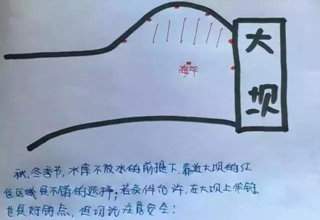 大坝
海竿
秋、冬季节，水库不放水的前提下，靠近大坝的红
色区域是不错的选择；若条件允许，在大坝上作钓
也是好钓点，但切记注意安全！